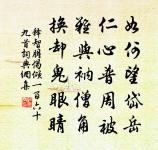 如何望岱岳
仁心普周被
難與衲僧角
換却鬼眼睛
釋智朋偈傾一百六十
九首詞典網奉